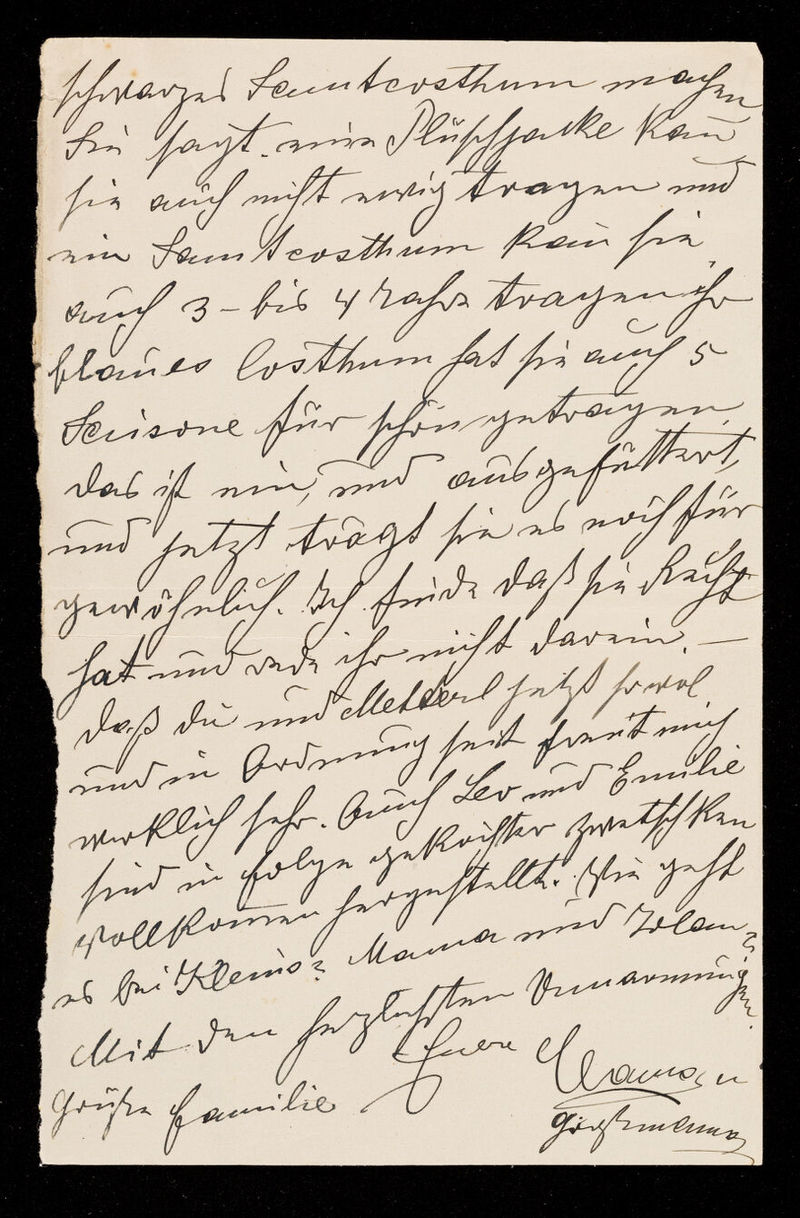 schwarzes Samtcosthum machen
Sie sagt. eine Plüschjacke kañ
sie auch nicht ewig tragen und
ein Samtcosthum kañ sie
auch 3 - bis 4 Jahre tragen ihr
blaues Costhum hat sie auch 5
Saisone für schön getragen
das ist ein, und ausgefüttert,
und jetzt trägt sie es noch für
gewöhnlich. Ich finde daß sie Recht
hat und rede ihr nicht darein. —
daß du und jetzt so wol
und in Ordnung seit freut mich
wirklich sehr. Auch Leo und Emilie
sind in folge gekochter zwetschken
vollkom̄en hergestellt. Wie geht
es bei Kleins? Mama und Jolan?
Mit den herzlichsten Umarmungen.
Euere Maman
Grüße Familie Großmama